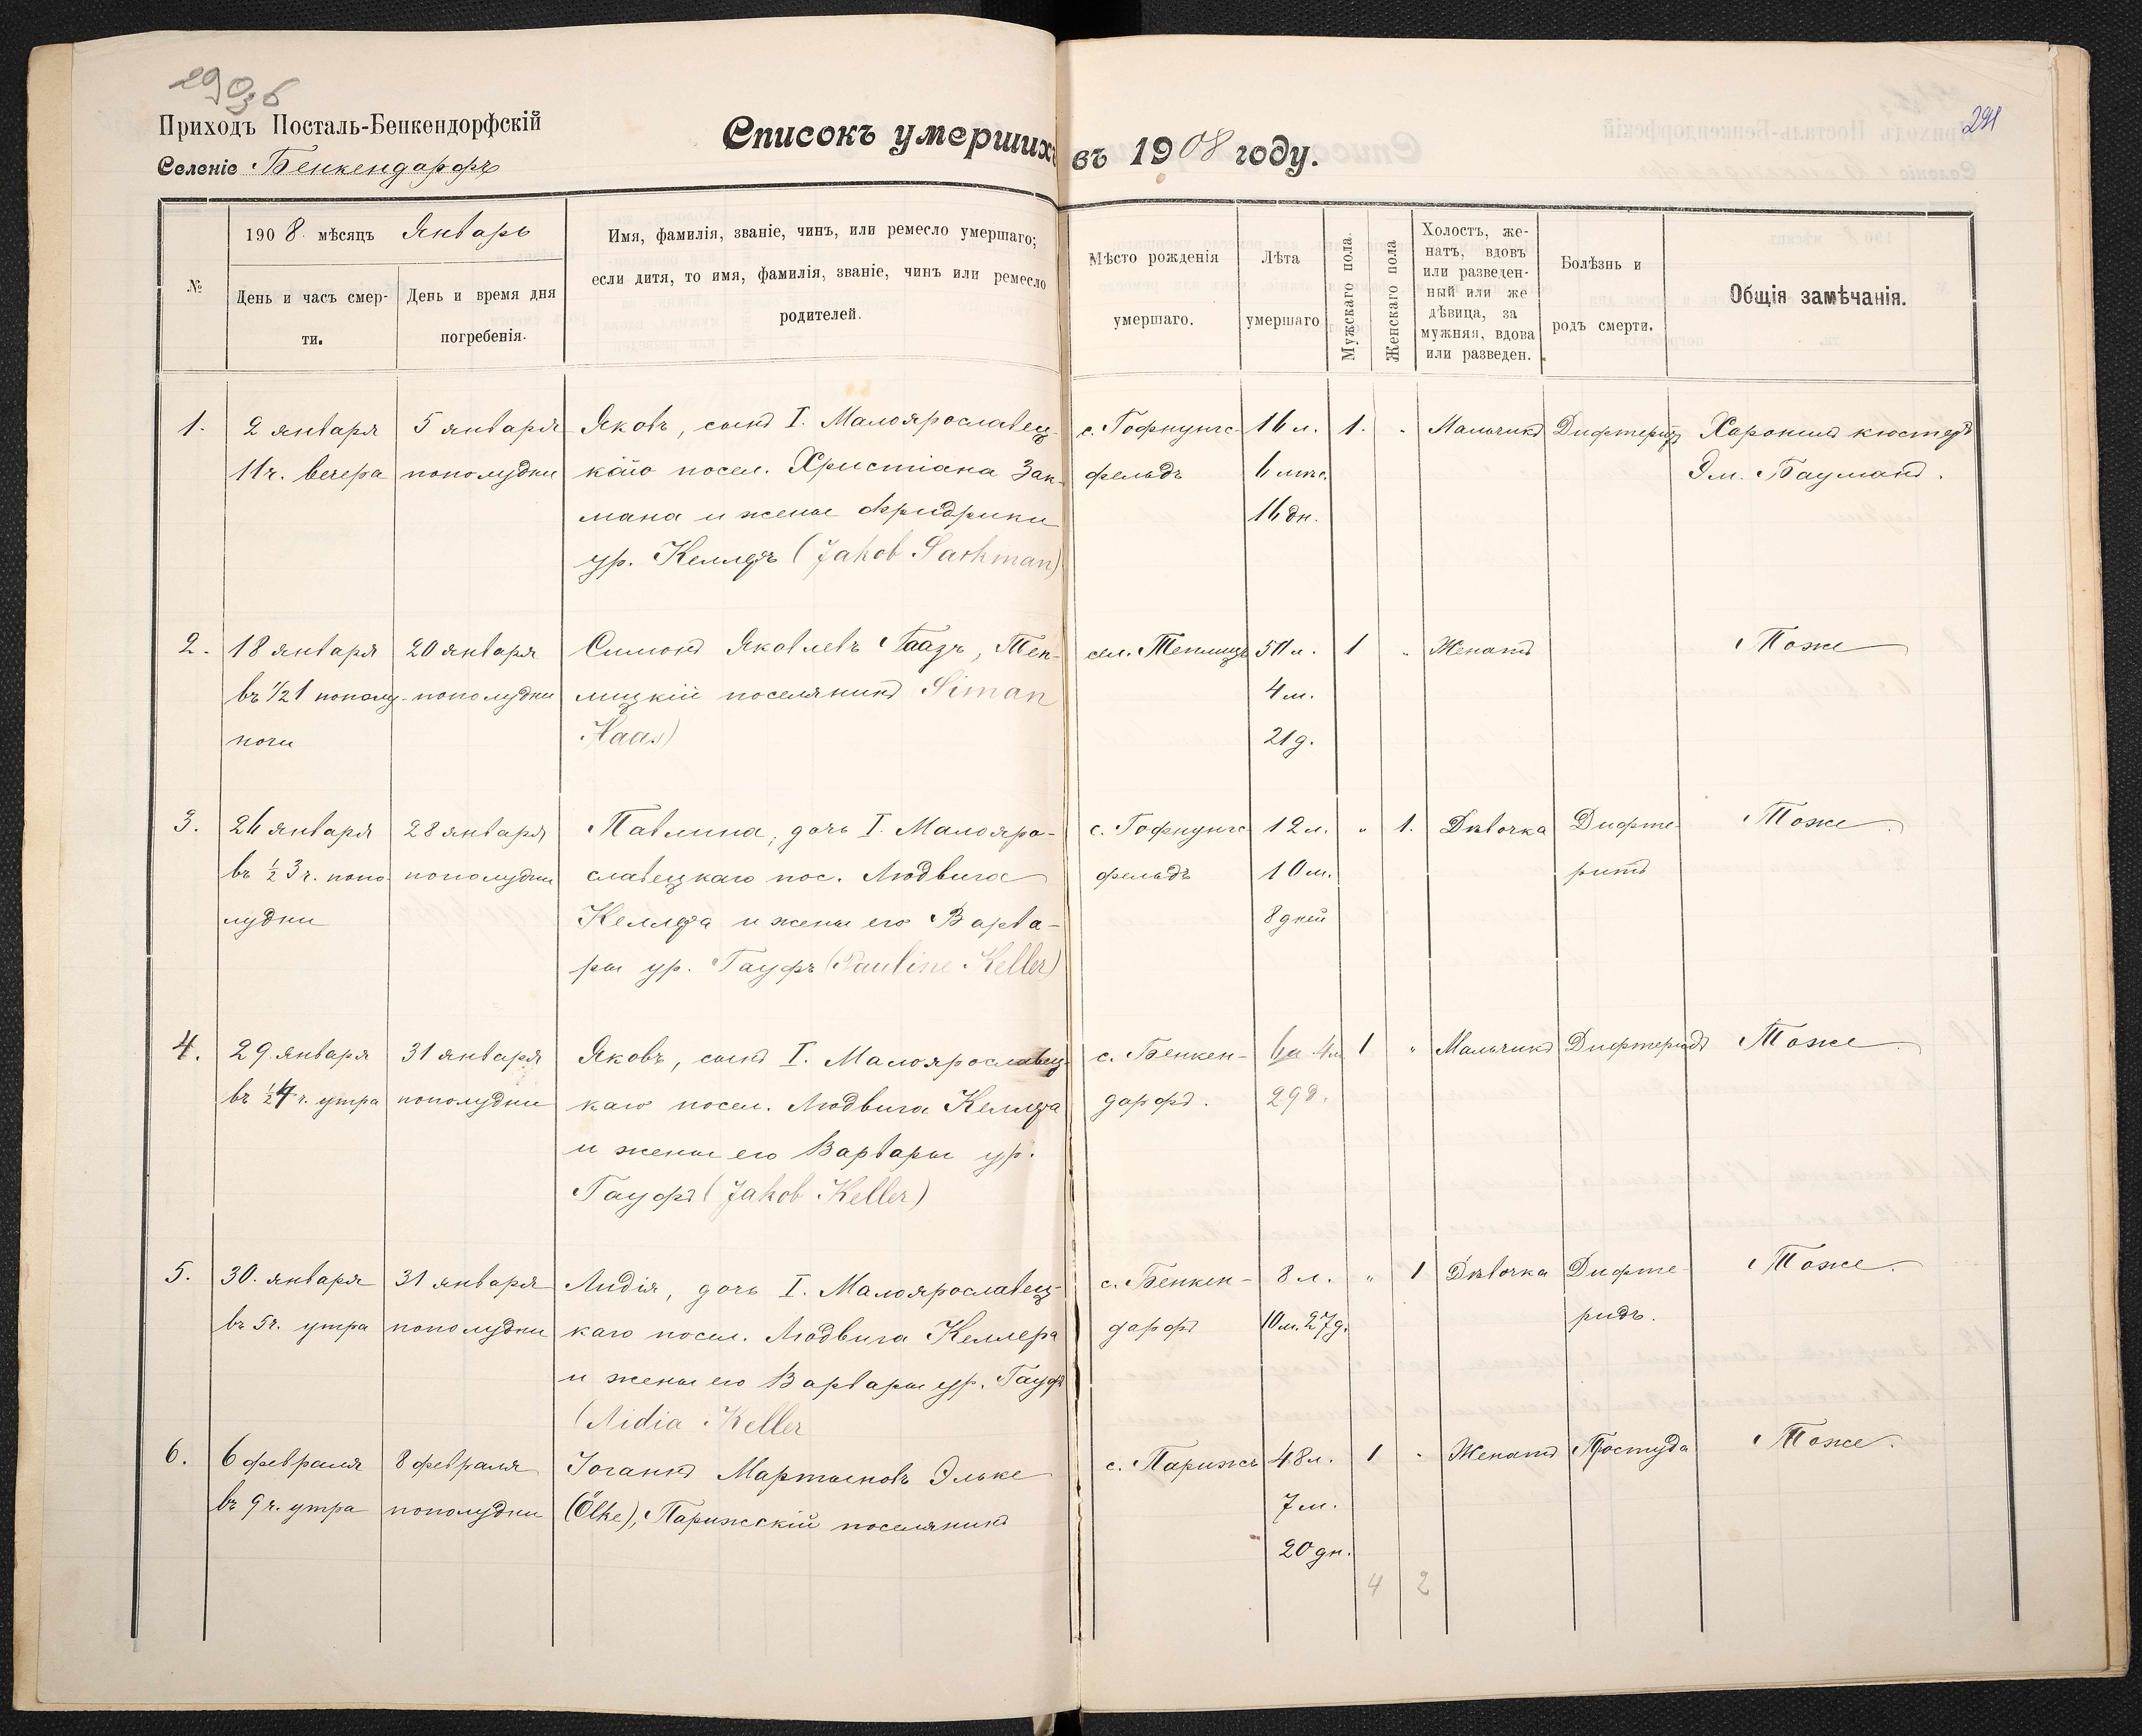 290 об
291
Приходъ Посталь-Бенкендорфскій
Селеніе Бенкендорфъ
Списокъ умершихъ въ 1908 году.
№
1908 мѣсяцъ Январь
День и часъ смер-
ти.
День и время дня
погребенія.
Имя, фамилія, званіе, чинъ, или ремесло умершаго;
если дитя, то имя, фамилія, званіе, чинъ или ремесло
родителей.
Мѣсто рожденія
умершаго.
Лѣта
умершаго
Мужскаго пола.
Женскаго пола
Холостъ, же-
натъ, вдовъ
или разведен-
ный или же
дѣвица, за
мужняя, вдова
или разведен.
Болѣзнь и
родъ смерти.
Общія замѣчанія.
1.
2 января
11 ч. вечера
5 января
пополудни
Яковъ, сынъ I. Малоярославец-
каго посел. Христіана Зак-
мана и жены Фридрики
ур. Келлеръ (Jakob Sackman)
с. Гофнунгс-
фельдъ
16 л.
6 мѣс.
16 дн.
1.
"
Мальчикъ
Дифтеритъ
Хоронилъ кюстеръ
Эм. Бауманъ.
2.
18 января
въ 1/2 1 пополу-
ночи
20 января
пополудни
Симонъ Яковлевъ Гаазъ, Теп-
лицкій поселянинъ Siman
Haas)
сел. Теплицъ
50 л.
4 м.
21 д.
1
"
Женатъ
Тоже
3.
26 января
въ 1/2 3 ч. попо-
лудни
28 января
пополудни
Павлина, дочь I. Малояро-
славецкаго пос. Людвига
Келлера и жены его Варва-
ры ур. Гауфъ (Pauline Keller)
с. Гофнунгс-
фельдъ
12 л.
10 м.
8 дней
"
1.
Дѣвочка
Дифте-
ритъ
Тоже.
4.
29 января
въ 1/2 4 ч. утра
31 января
пополудни
Яковъ, сынъ I. Малоярославец-
каго посел. Людвига Келлера
и жены его Варвары ур.
Гауфъ (Jakob Keller)
с. Бенкен-
дорфъ.
6 л. 4 м.
29 д.
1
"
Мальчикъ
Дифтеридъ
Тоже.
5.
30. января
въ 5 ч. утра
31 января
пополудни
Лидія, дочь I. Малоярославец-
каго посел. Людвига Келлера
и жены его Варвары ур. Гауфъ
(Lidia Keller
с. Бенкен-
дорфъ
8 л.
10 м. 27 д.
"
1
Дѣвочка
Дифте-
ридъ.
Тоже.
6.
6 февраля
въ 9 ч. утра
8 февраля
пополудни
Іоганнъ Мартыновъ Эльке
(Ölke), Парижскій поселянинъ
с. Парижъ
48 л.
7 м.
20 дн.
1
"
Женатъ
Простуда
Тоже.
4
2